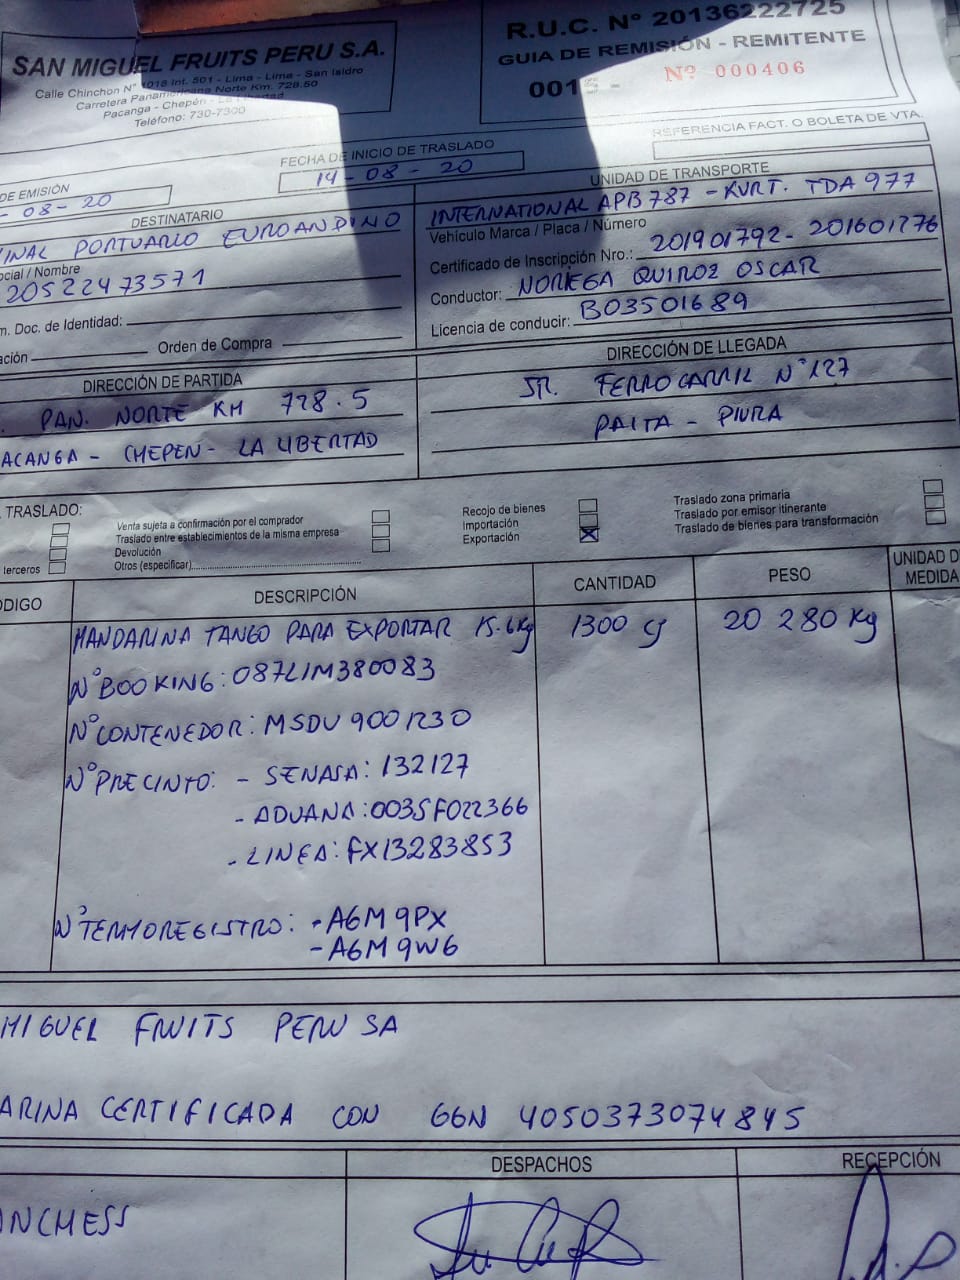 SAN MIGUEL FRUITS PERU S.A.
Calle Chinchon N° 1018 Int. 501 - Lima - Lima - San Isidro
Carretera Panamericana Norte Km. 728.50
Pacanga - Chepén - La Libertad
Teléfono: 730-7300
R.U.C. Nº 20136222725
GUIA DE REMISIÓN - REMITENTE
001
Nº 000406
REFERENCIA FACT. O BOLETA DE VTA.
DE EMISIÓN
- 08 - 20
FECHA DE INICIO DE TRASLADO
14 - 08 - 20
DESTINATARIO
INAL PORTUARIO EUROANDINO
ocial / Nombre
20522473571
m. Doc. de Identidad:
ación
Orden de Compra
UNIDAD DE TRANSPORTE
INTERNATIONAL APB 787 - KURT. TDA 977
Vehículo Marca / Placa / Número
Certificado de Inscripción Nro.: 201901792- 201601776
Conductor: NORIEGA QUIROZ OSCAR
Licencia de conducir: B03501689
DIRECCIÓN DE PARTIDA
. PAN. NORTE KM 728.5
ACANGA - CHEPEN - LA LIBERTAD
DIRECCIÓN DE LLEGADA
JR. FERROCARRIL N°127
PAITA - PIURA
TRASLADO:
terceros
Venta sujeta a confirmación por el comprador
Traslado entre establecimientos de la misma empresa
Devolución
Otros (especificar)
Recojo de bienes
Importación
Exportación X
Traslado zona primaria
Traslado por emisor itinerante
Traslado de bienes para transformación
ODIGO DESCRIPCIÓN CANTIDAD PESO UNIDAD D MEDIDA
MANDARINA TANGO PARA EXPORTAR 15.6Kg 1300 cj 20 280 Kg
N° BOOKING: 087LIM380083
N° CONTENEDOR: MSDU 9001230
N° PRECINTO: - SENASA: 132127
- ADUANA: 0035F022366
- LINEA: FX13283853
N° TERMOREGISTRO: - A6M9PX
- A6M9W6
MIGUEL FRUITS PERU SA
ARINA CERTIFICADA CON GGN 4050373074845
DESPACHOS
RECEPCIÓN
NCHESS